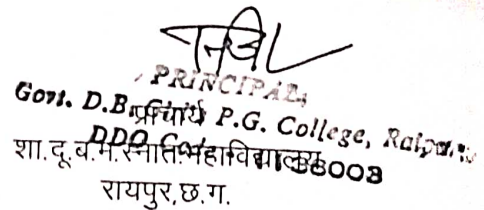 PRINCIPAL
Govt. D.B. P.G. College, Raipur
प्राचार्य
DDO
शा.दू.ब.म.स्नात.महाविद्यालय
रायपुर,छ.ग.